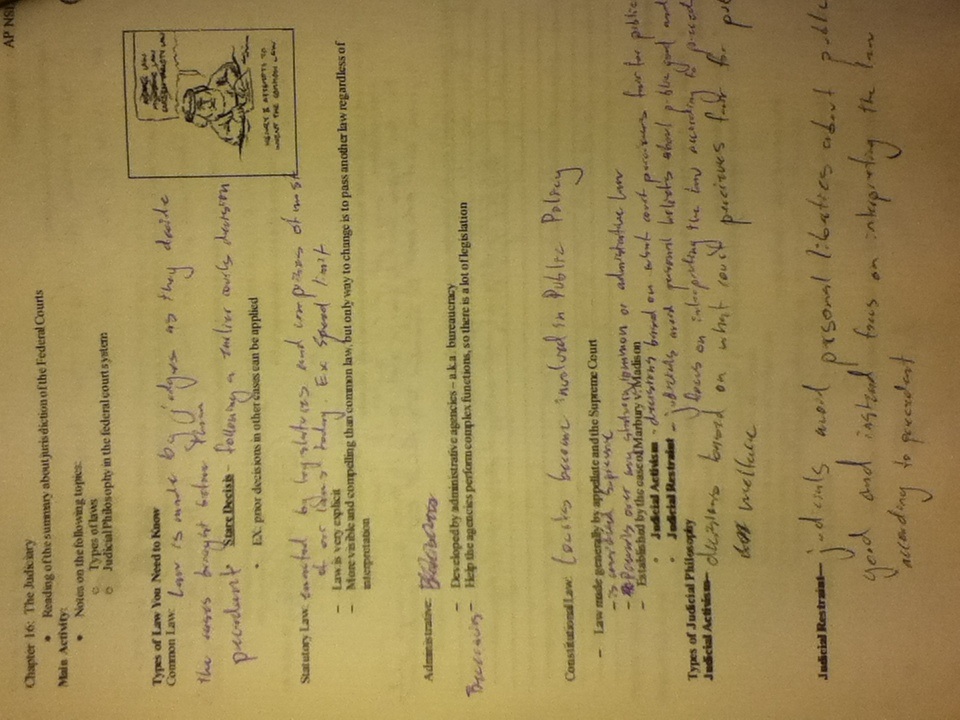 AP NSL
Chapter 16: The Judiciary
• Reading of the summary about jurisdiction of the Federal Courts
Main Activity:
• Notes on the following topics:
o Types of laws
o Judicial Philosophy in the federal court system
Types of Law You Need to Know
Common Law: Law is made by judges as they decide
the cases brought before them
precedent • Stare Decisis - following a earlier courts decision
• EX: prior decisions in other cases can be applied
HENRY II ATTEMPTS TO
INVENT THE COMMON LAW
Statutory Law: enacted by legislatures and comprises of most
of our laws today. Ex Speed limit
– Law is very explicit
– More visible and compelling than common law, but only way to change is to pass another law regardless of
interpretation
Administrative:
– Developed by administrative agencies – a.k.a. bureaucracy
– Help the agencies perform complex functions, so there is a lot of legislation
Constitutional Law: become involved in Public Policy
– Law made generally by appellate and the Supreme Court
– is considered supreme
– over any statutory, common or law
– Established by the case of Marbury v. Madison
• Judicial Activism - decisions based on what court percieves fair for public
• Judicial Restraint - judicials avoid personal about public good and
focus on interpreting the law according to
Types of Judicial Philosophy
Judicial Activism— decisions based on what court percieves fair for
welfare
Judicial Restraint— judicials avoid personal about public
good and instead focus on interpreting the law
according to precedent